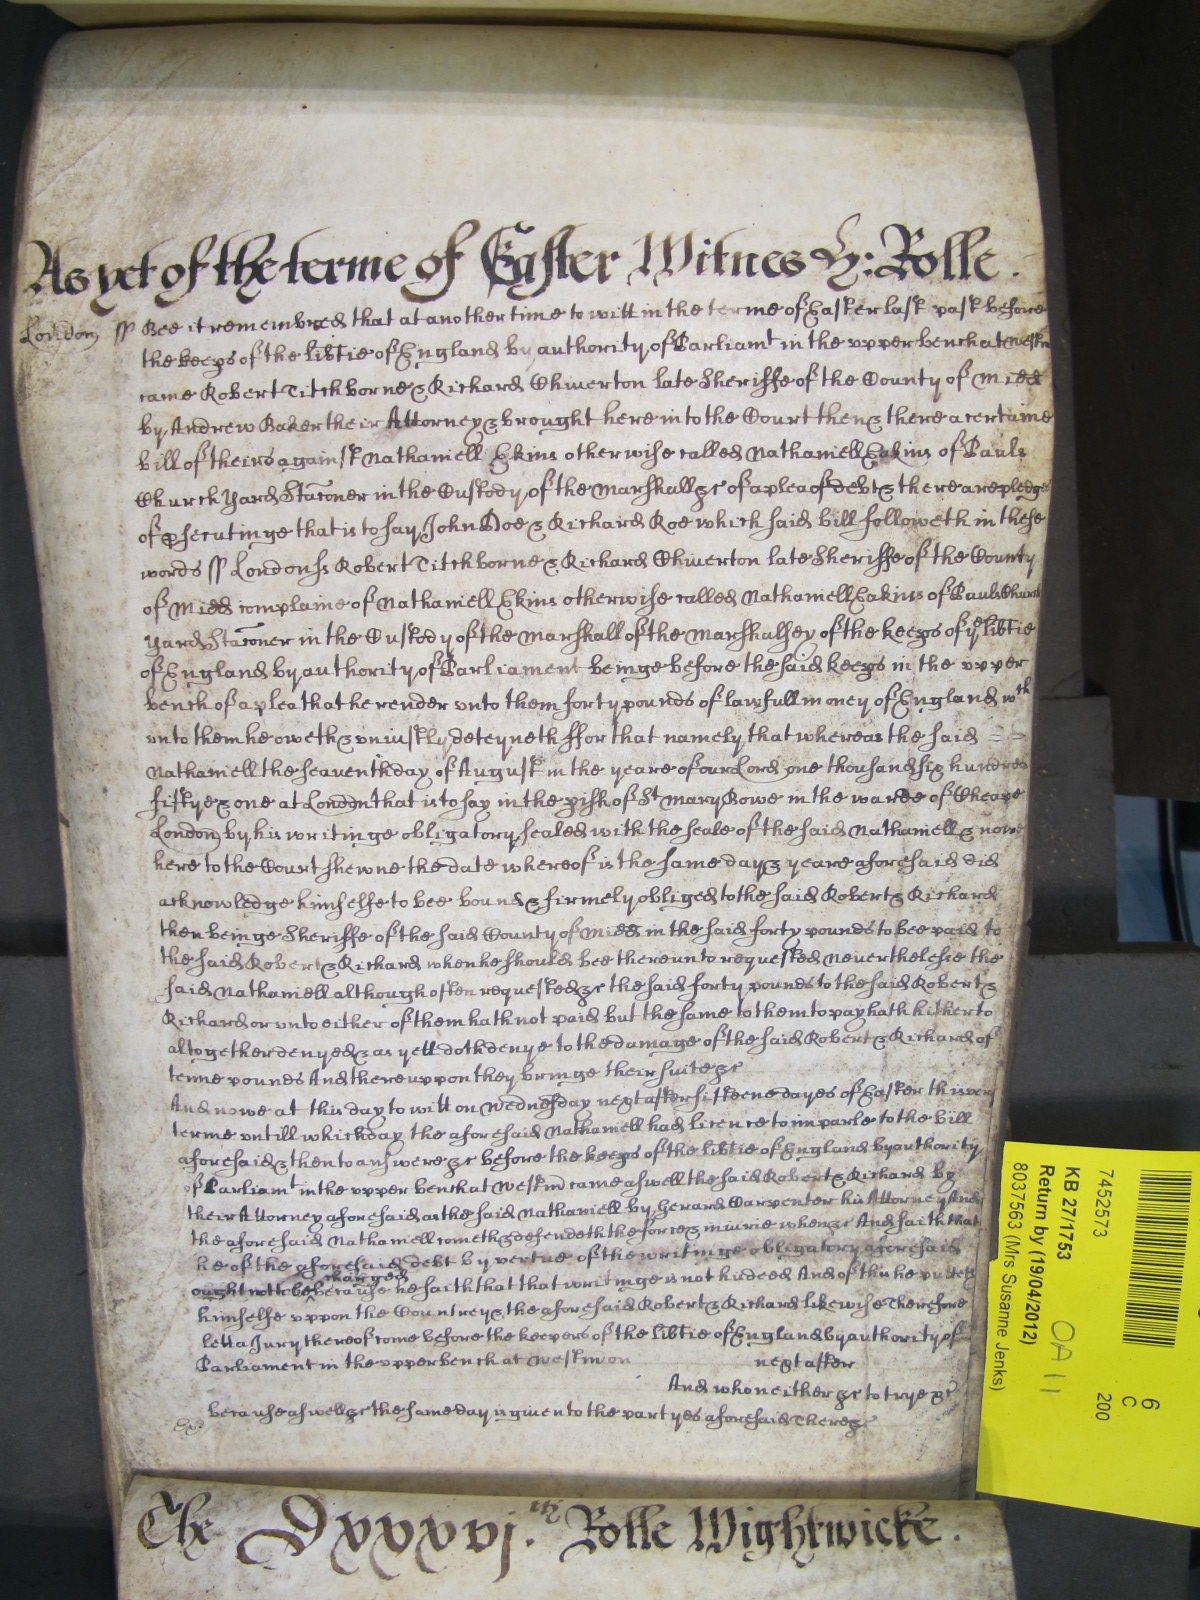 As yet of the terme of Easter Witnes H: Rolle .
London ss Bee it remembred that at another time to witt in the terme of Easter last past before
the keeps of the libtie of England by authority of Parliamt in the upper bench at Westm
came Robert Titchborne & Richard Chiverton late Sheriffe of the County of Midd
by Andrew Baker their Attorney & brought here into the Court then & there a certaine
bill of theirs against Nathaniell Ekins otherwise called Nathaniell Eakins of Pauls
Church Yard Staconer in the Custody of the Marshall &c of a plea of debt & there are pledges
of psecutinge that is to say John Doe & Richard Roe which said bill followeth in these
words ss London ss Robert Titchborne & Richard Chiverton late Sheriffe of the County
of Midd complaine of Nathaniell Ekins otherwise called Nathaniell Eakins of Pauls Church
Yard Staconer in the Custody of the Marshall of the Marshalsey of the keeps of ye libtie
of England by authority of Parliament beinge before the said keeps in the upper
bench of a plea that he render unto them forty pounds of lawfull money of England wth
unto them he oweth & uniustly deteyneth ffor that namely that whereas the said = =
Nathaniell the seaventh day of August in the yeare of our Lord one thousand six hundred
fiftye & one at London that is to say in the pish of St Mary Bowe in the warde of Cheape
London by his writinge obligatory sealed with the seale of the said Nathaniell & nowe
here to the Court shewne the date whereof is the same day & yeare aforesaid did
acknowledge himselfe to bee bound & firmely obliged to the said Robert & Richard
then beinge Sheriffe of the said County of Midd in the said forty pounds to bee paid to
the said Robert & Richard when he should bee thereunto requested Neverthelesse the
said Nathaniell although often requested &c the said forty pounds to the said Robert &
Richard or unto either of them hath not paid but the same to them to pay hath hitherto
altogether denyed & as yett doth denye to the damage of the said Robert & Richard of
tenne pounds And thereuppon they bringe their suite &c
And nowe at this day to witt on Wednesday next after fifteene dayes of Easter this very
terme untill which day the aforesaid Nathaniell had licence to imparle to the bill
aforesaid & then to answere &c before the keeps of the libtie of England by authority
of Parliamt in the upper bench at Westm came aswell the said Robert & Richard by
their Attorney aforesaid as the said Nathaniell by Gerard Carpenter his Attorney And
the aforesaid Nathaniell cometh & defendeth the force & iniurie when &c And saith that
he of the aforesaid debt by vertue of the writinge obligatory aforesaid
charged
ought nott to be because he saith that that writinge is not his deed And of this he putteth
himselfe uppon the Countrey & the aforesaid Robert & Richard likewise Therefore
lett a Jury thereof come before the keepers of the libtie of England by authority of
Parliament in the upper bench at Westm on next after
And who neither &c to trye &c
because aswell &c the same day is given to the partyes aforesaid There &c
The Dxxxvj.th Rolle Wightwicke .
7452673
KB 27/1753
Return by (19/04/2012)
8037563 (Mrs Susanne Jenks)
OA 11
6
C
200